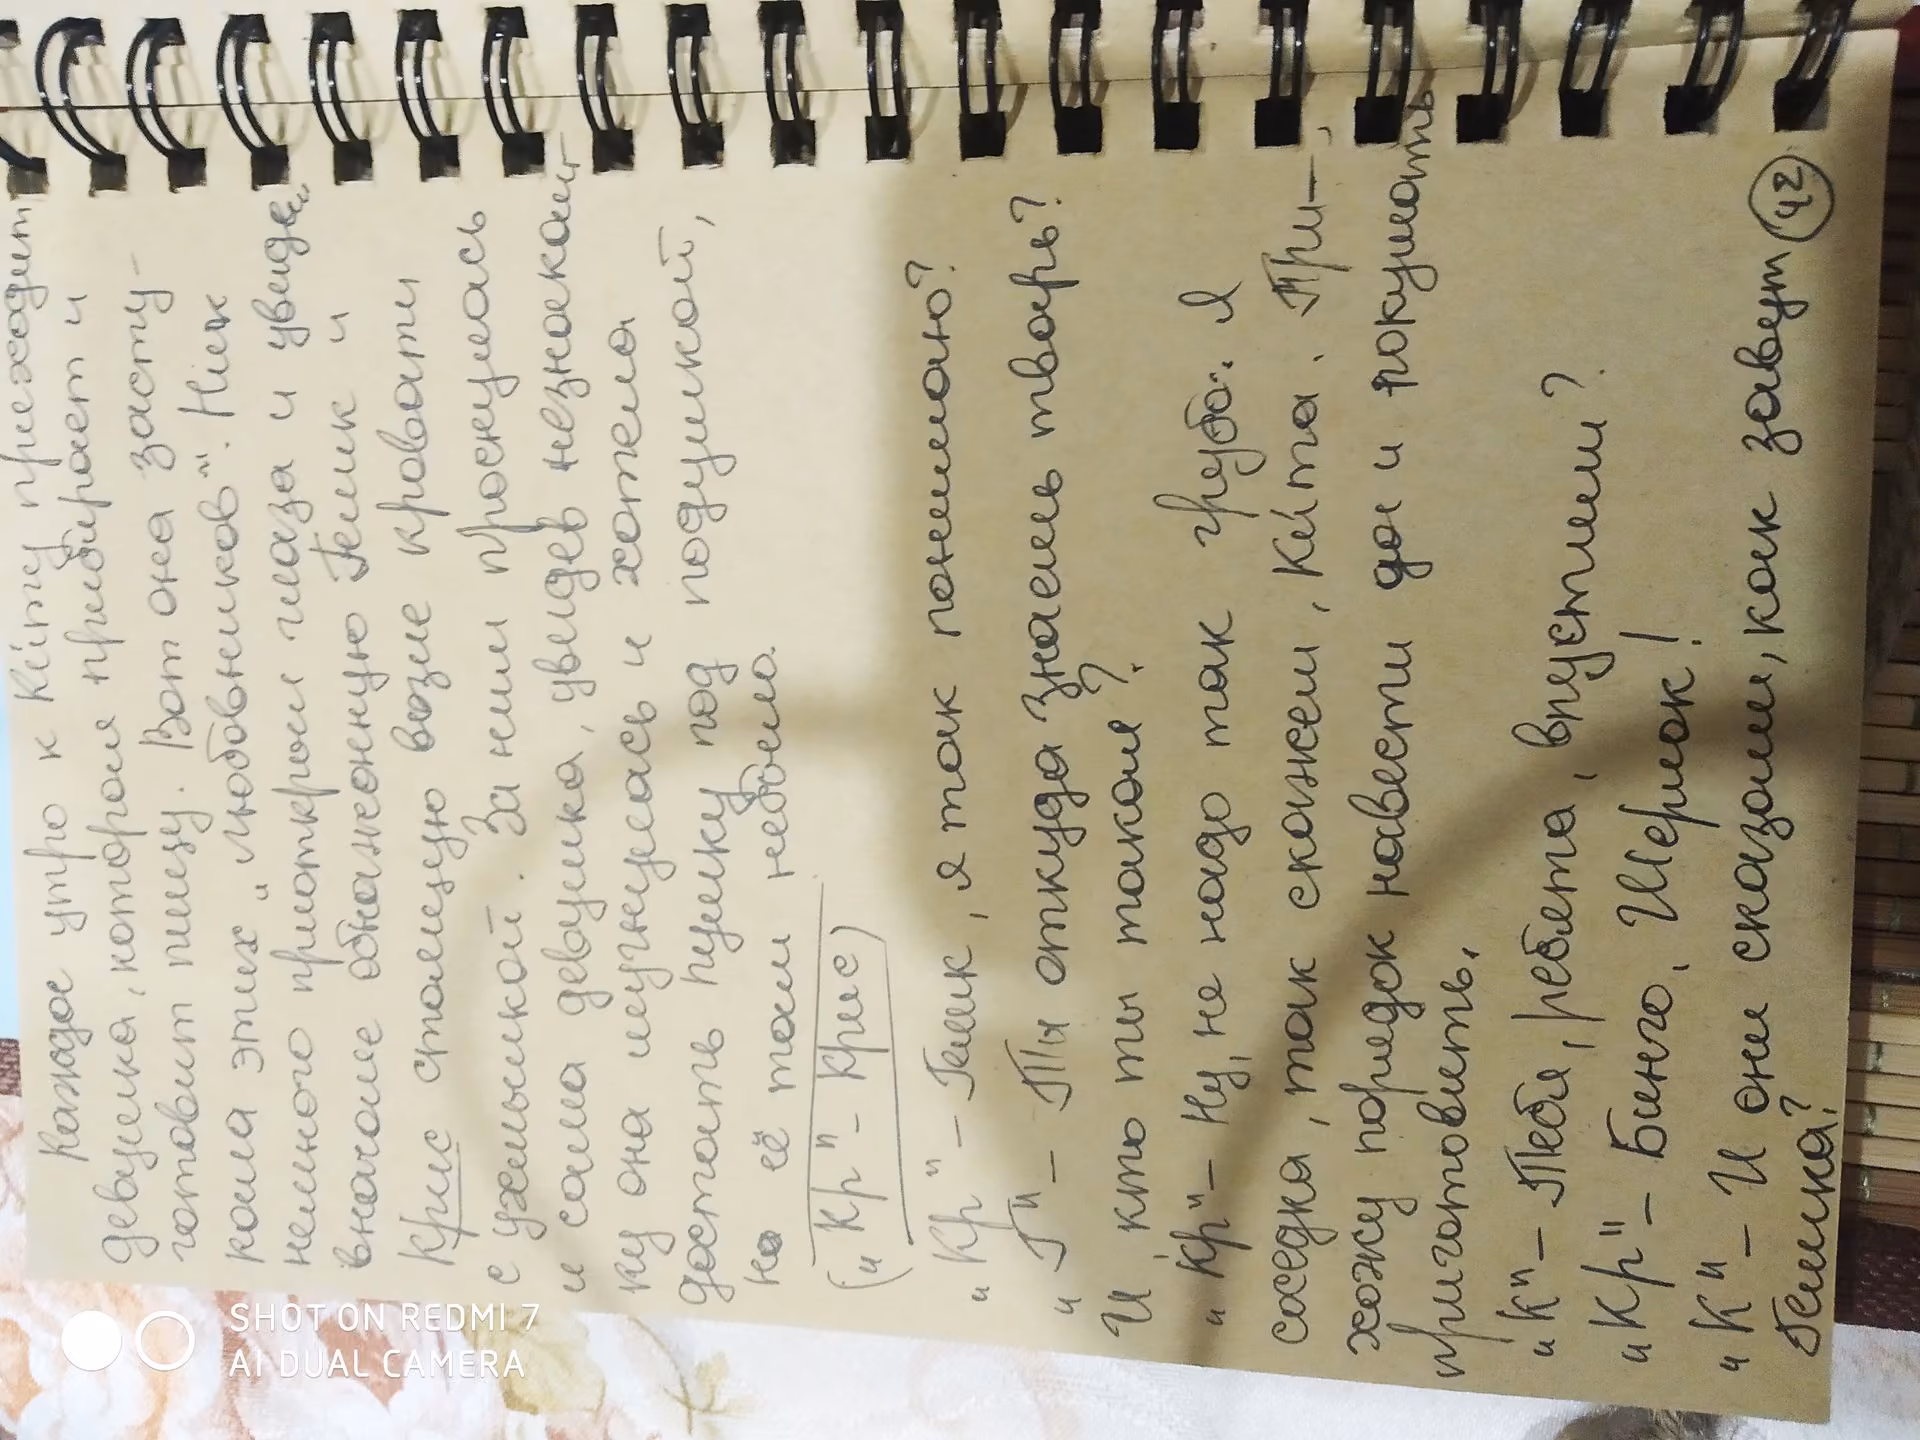 Каждое утро к Киту приходит
девушка, которая прибирает и
готовит пищу. Вот она засту-
кала этих "любовников". Ник
немного приоткрыл глаза и увидел
вначале обнаженную Гемик и
Крис стоящую возле кровати
с ухмылкой. За ним проснулась
и сама девушка, увидев незнаком-
ку она испугнулась и хотела
достать пушку под подушкой,
но её там небыло.
("Кр" - Крис)
"Кр" - Гемик, я так понимаю?
"Г" - Ты откуда знаешь тварь?
И кто ты такая?
"Кр" - Ну, не надо так грубо. Я
соседка, так скажем, Кита. При-
хожу порядок навести да и покушать
приготовить.
"К" - Тебя, ребята, впустили?
"Кр" - Бинго, Шерлок!
"К" - И они сказали, как зовут
Гемика?
42
SHOT ON REDMI 7
AI DUAL CAMERA